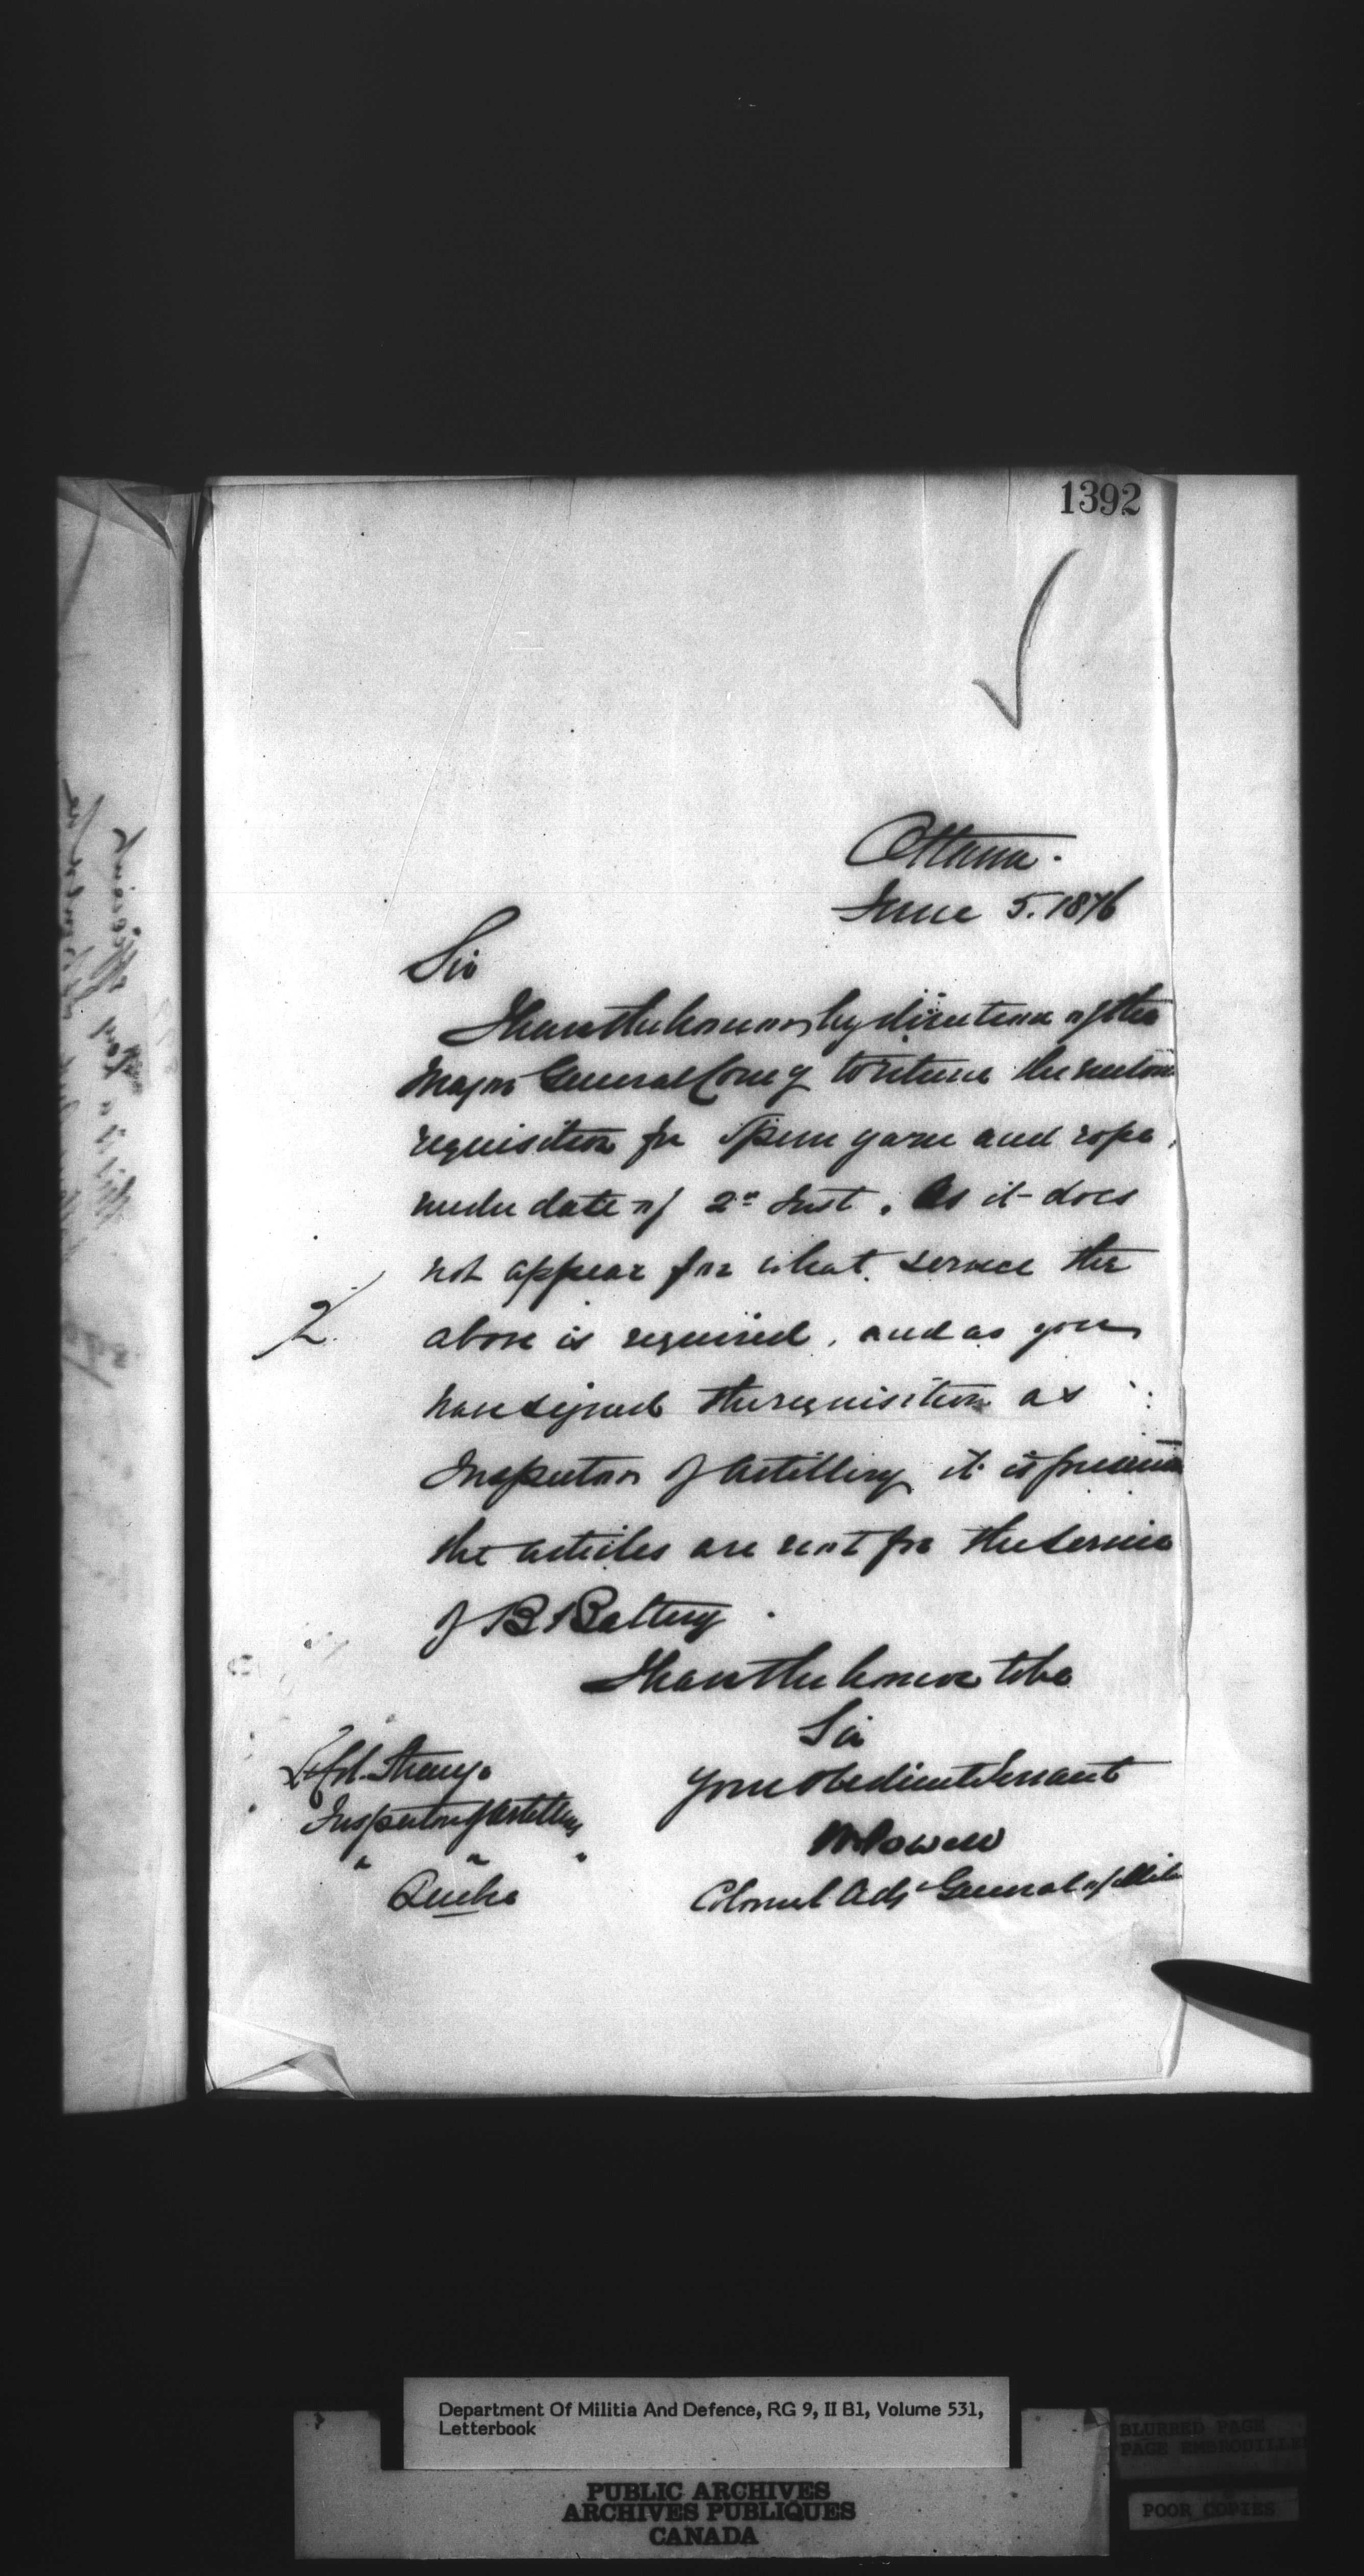 1392
Ottawa.
June 5. 1876
Sir
I have the honour, by direction of the
Major General Comg to return the enclosed
requisition for Spun yarn and rope,
under date of 2n Inst. As it does
not appear for what service the
2. above is required, and as you
have signed the requisition as
Inspector of Artillery it is presumed
the articles are not for the service
of B Battery.
I have the honour to be
Sir
Your obedient Servant
W Powell
Colonel Adjt General of Militia
Lt Col. Strange
Inspector of Artillery
" " "
Quebec
Department Of Militia And Defence, RG 9, II B1, Volume 531,
Letterbook
PUBLIC ARCHIVES
ARCHIVES PUBLIQUES
CANADA
BLURRED PAGE
PAGE EMBROUILLEE
POOR COPIES